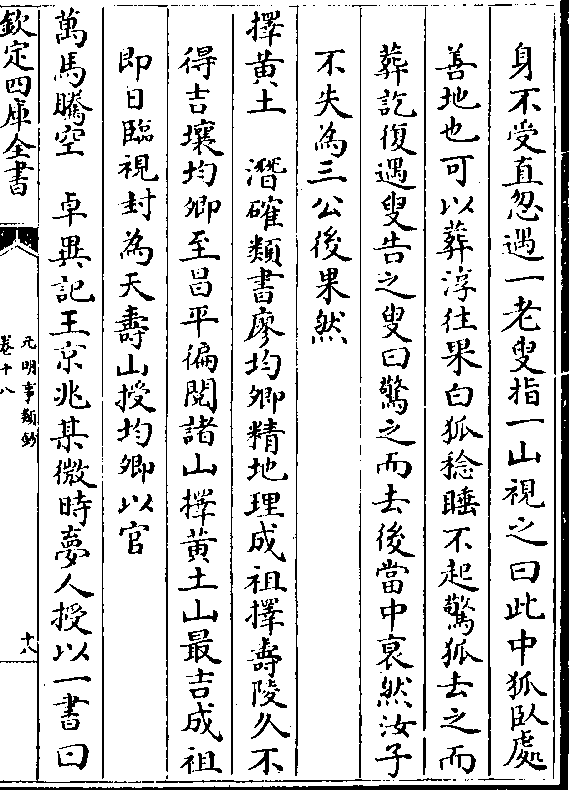 身不受直忽遇一老叟指一山視之曰此中狐臥處
善地也可以葬淳往果白狐稔睡不起驚狐去之而
葬訖復遇叟告之叟曰驚之而去後當中衰然汝子
不失為三公後果然
擇黄土　潛確類書廖均卿精地理成祖擇壽陵久不
得吉壤均卿至昌平徧閱諸山擇黄土山最吉成祖
即日臨視封為天壽山授均卿以官
萬馬騰空　卓異記王京兆某微時夢人授以一書曰
欽定四庫全書
元明事類鈔
卷十八
十八